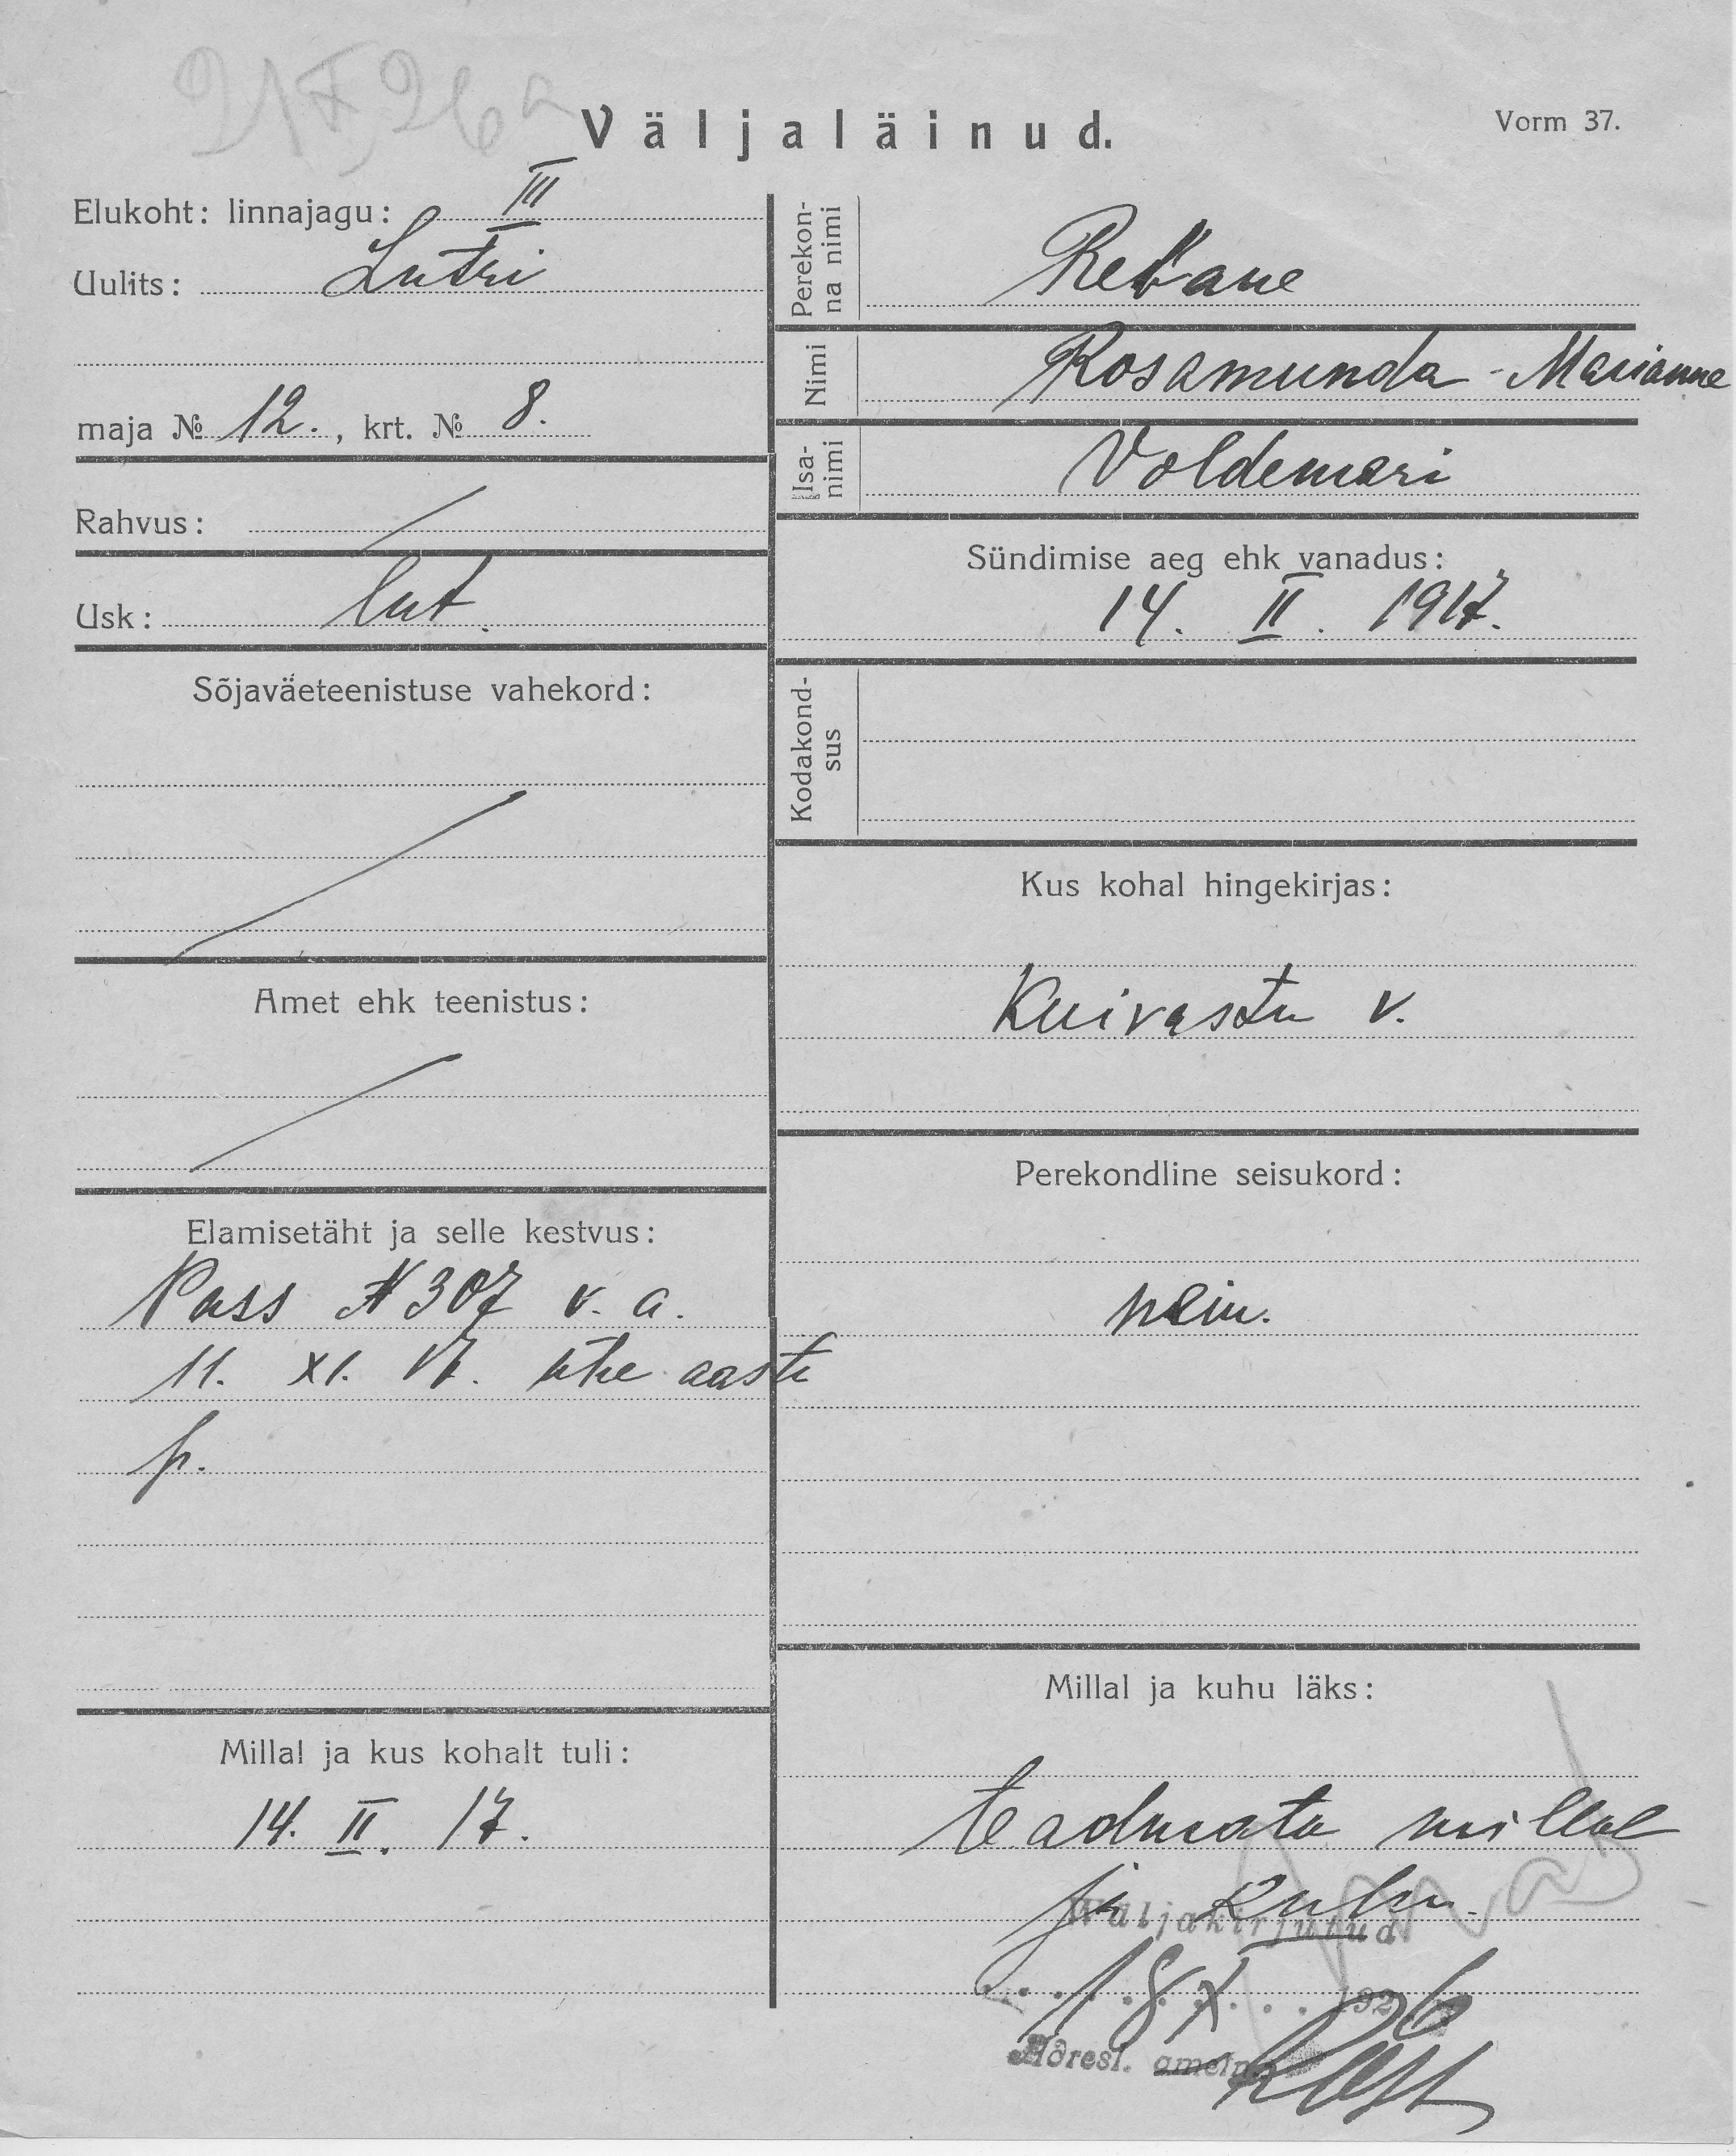 21 X 26 a
Väljaläinud.
Vorm 37.
Elukoht: linnajagu: III
Uulits: Lutri
maja № 12., krt. № 8.
Rahvus: /
Usk: lut.
Sõjaväeteenistuse vahekord:
Amet ehk teenistus:
Elamisetäht ja selle kestvus:
Pass N 307 v. a.
11. XI. 17. ühe aasta
p.
Millal ja kus kohalt tuli:
14. II. 17.
Perekonna nimi
Rebane
Nimi
Rosamunda-Marianne
Isanimi
Voldemari
Sündimise aeg ehk vanadus:
14. II. 1917.
Kodakondsus
Kus kohal hingekirjas:
Kuivastu v.
Perekondline seisukord:
Millal ja kuhu läks:
teadmata millal
ja kuhu.
Väljakirjutud
18 X 1926
Adresl. ametn.